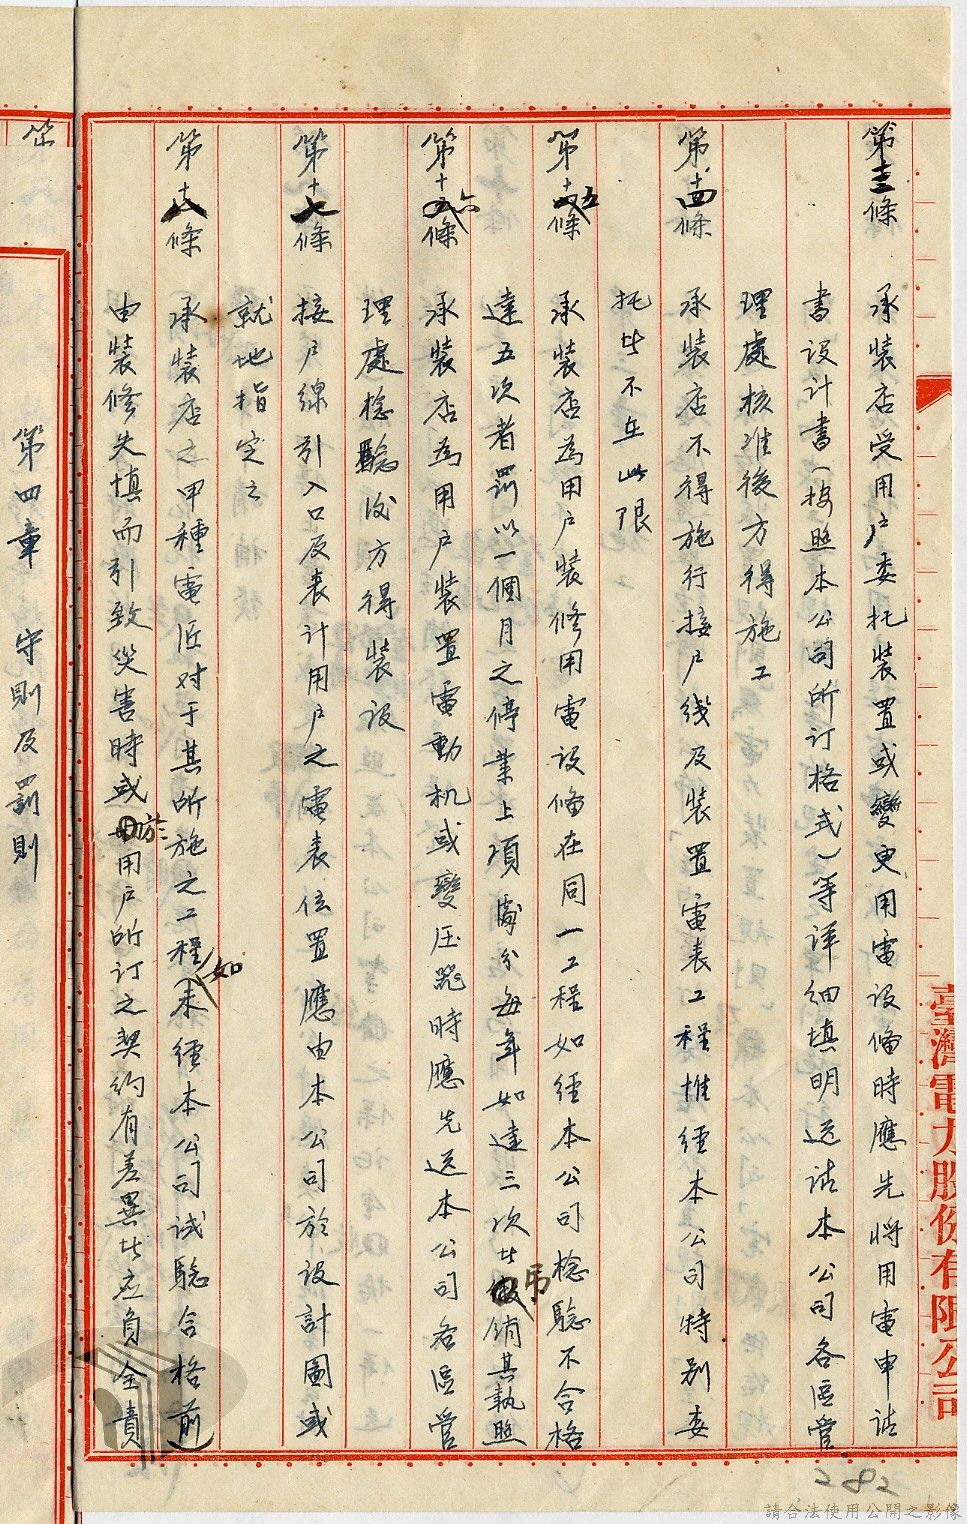 臺灣電力股份有限公司
第十三條 承裝店受用戶委托裝置或變更用電設備時應先將用電申請
書設計書(按照本公司所訂格式)等詳細填明送請本公司各區管
理處核准後方得施工
第十四條 承裝店不得施行接戶线及裝置電表工程惟經本公司特别委
托者不在此限
第十五條 承裝店為用戶裝修用電設備在同一工程如經本公司檢驗不合格
達五次者罰以一個月之停業上項處分每年如達三次者吊銷其執照
第十六條 承裝店為用戶裝置電動机或變压器時應先送本公司各區管
理處檢驗後方得裝設
第十七條 接戶線引入口及表计用戶之電表位置應由本公司於設計圖或
就地指定之
第十八條 承裝店之甲種電匠对于其所施之工程(如未經本公司試驗合格前)
由裝修失慎而引致災害時或於用戶所订之契约有差異者应負全責
第四章 守則及罰則
第
282
請合法使用公開之影像